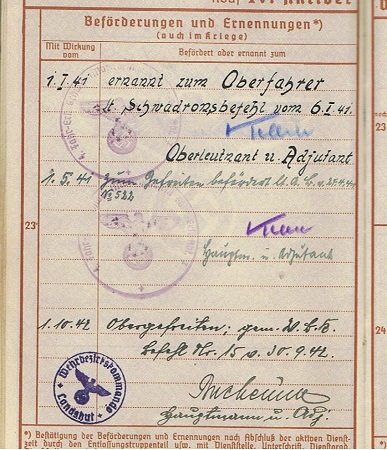 Beförderungen und Ernennungen*)
(auch im Kriege)
Mit Wirkung
vom
Befördert oder ernannt zum
1.I.41 ernannt zum Oberfahrer
lt. Schwadronsbefehl vom 6.I.41.
Oberleutnant u. Adjutant
1.5.41 zum Gefreiten befördert
No 522
23
24
Hauptm. u. Adjutant
1.10.42 Obergefreiten; gem. W.B.K.
Befehl Nr. 15 v. 30.9.42.
Hauptmann u. Adj.
Wehrbezirkskommando
Landshut
*) Bestätigung der Beförderungen und Ernennungen nach Abschluß der aktiven Dienst-
zeit durch den Entlassungstruppenteil usw. mit Dienststelle, Unterschrift, Dienstgrad